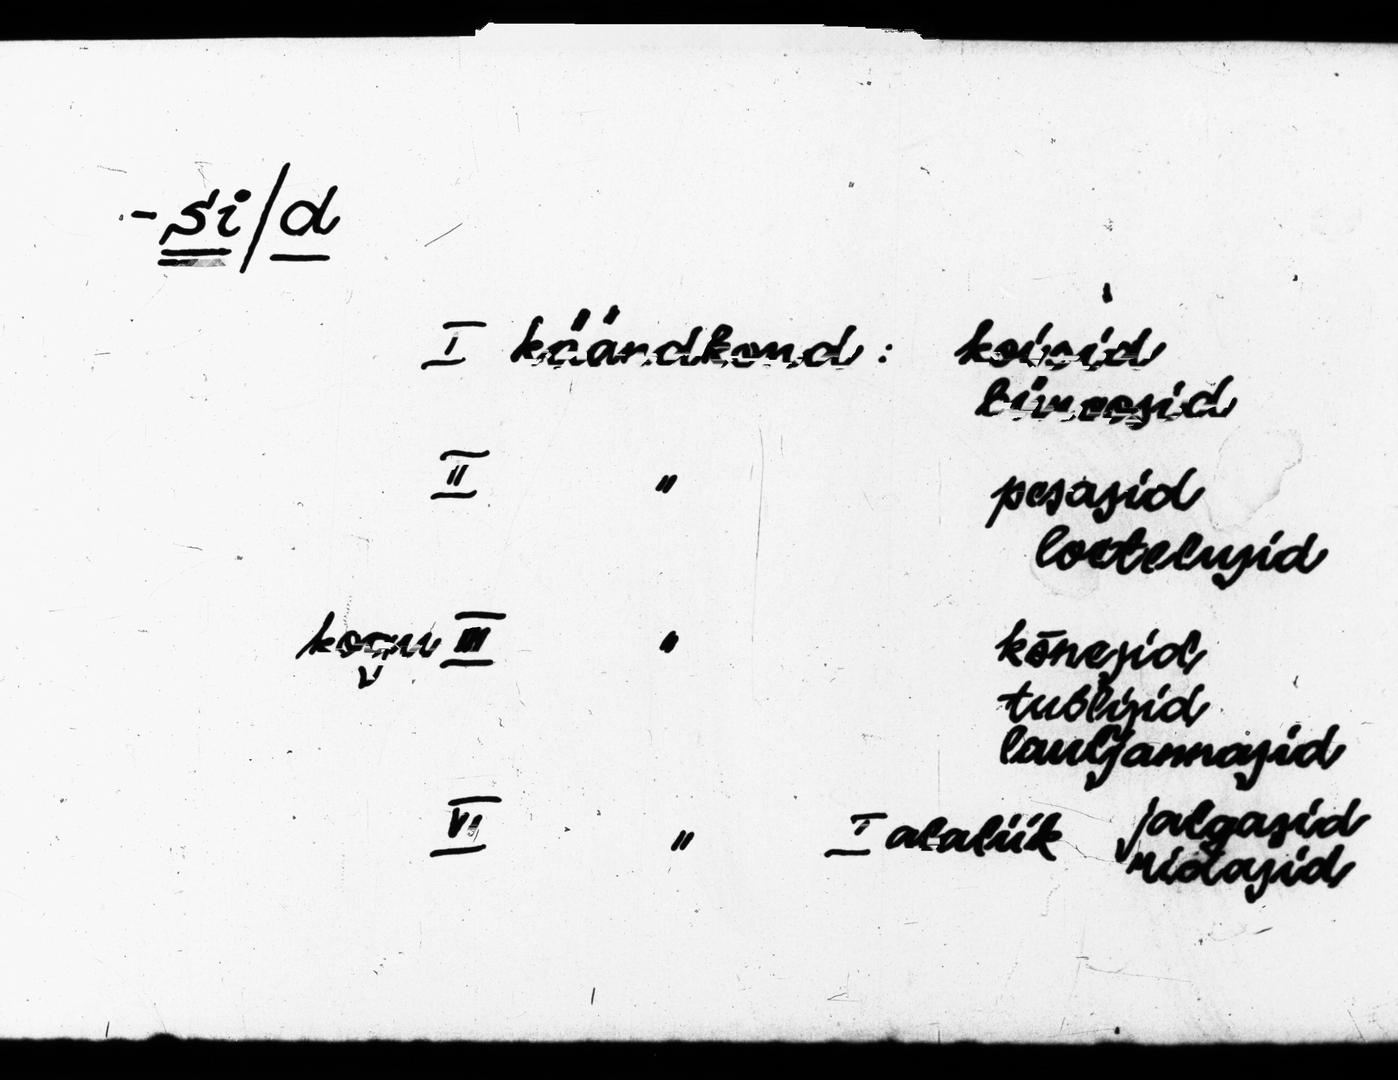 -si/d
I käändkond: koisid
pesasid
II " loetelusid
kogu III " kõnesid
tublisid
lauljannasid
VI " I alaliik jalgasid
ridasid